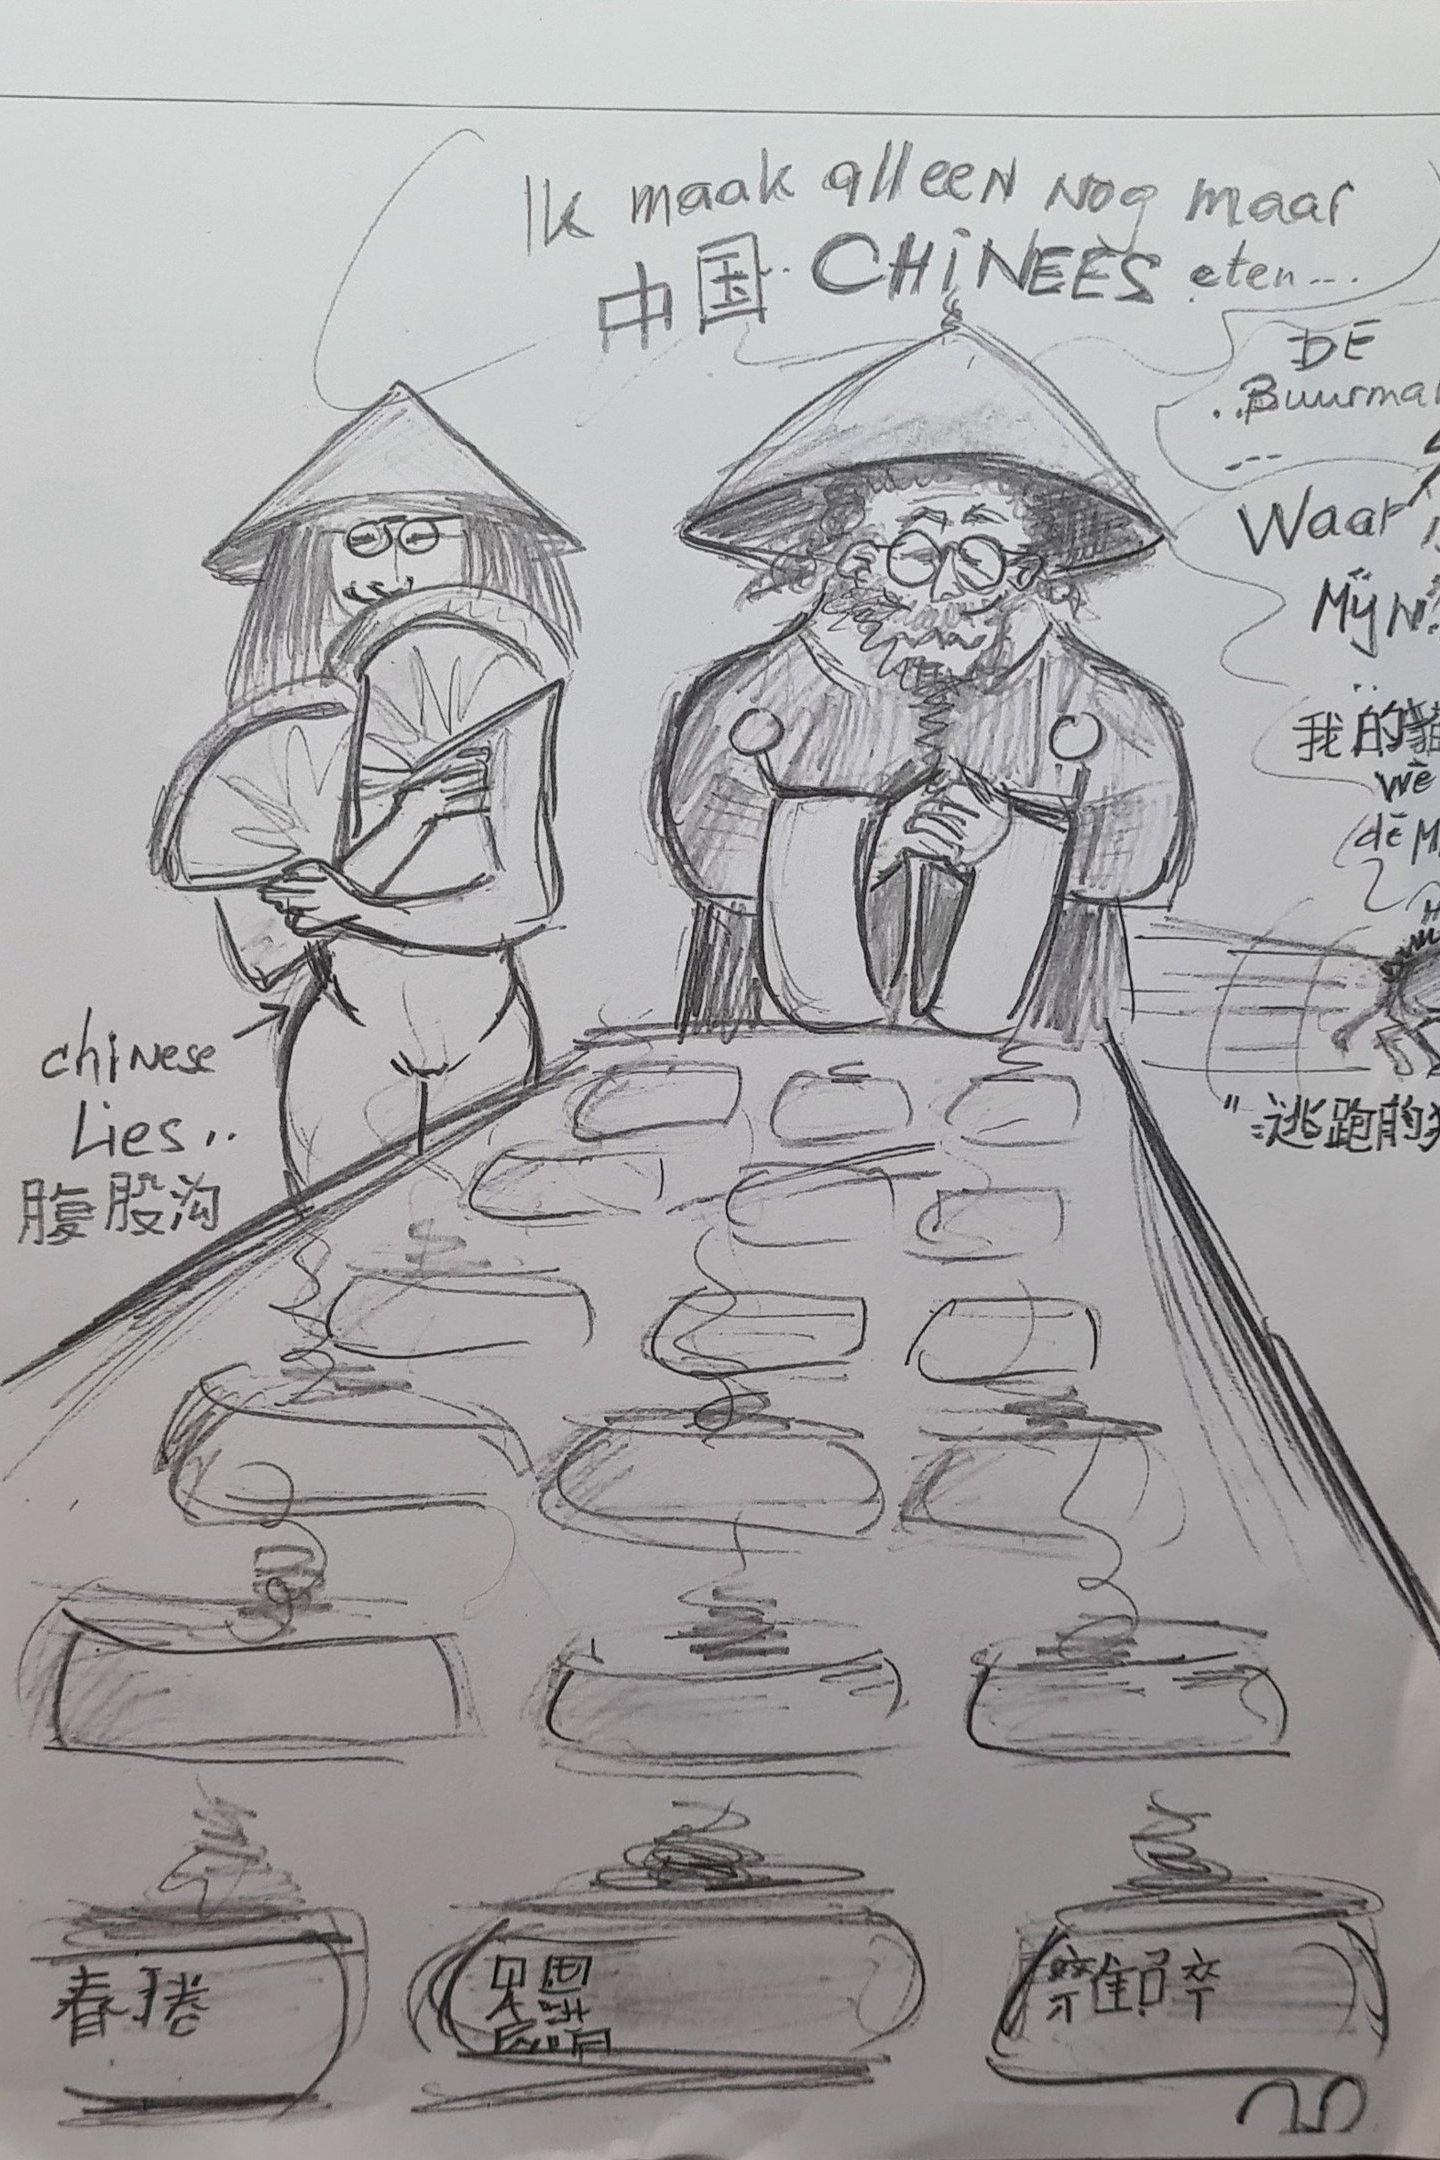 Ik maak alleen nog maar
中国.. CHINEES eten...
DE
..Buurma
---
Waar
Mijn
我的
wè
dē
chinese
Lies..
腹股沟
"逃跑的
春捲
雜碎